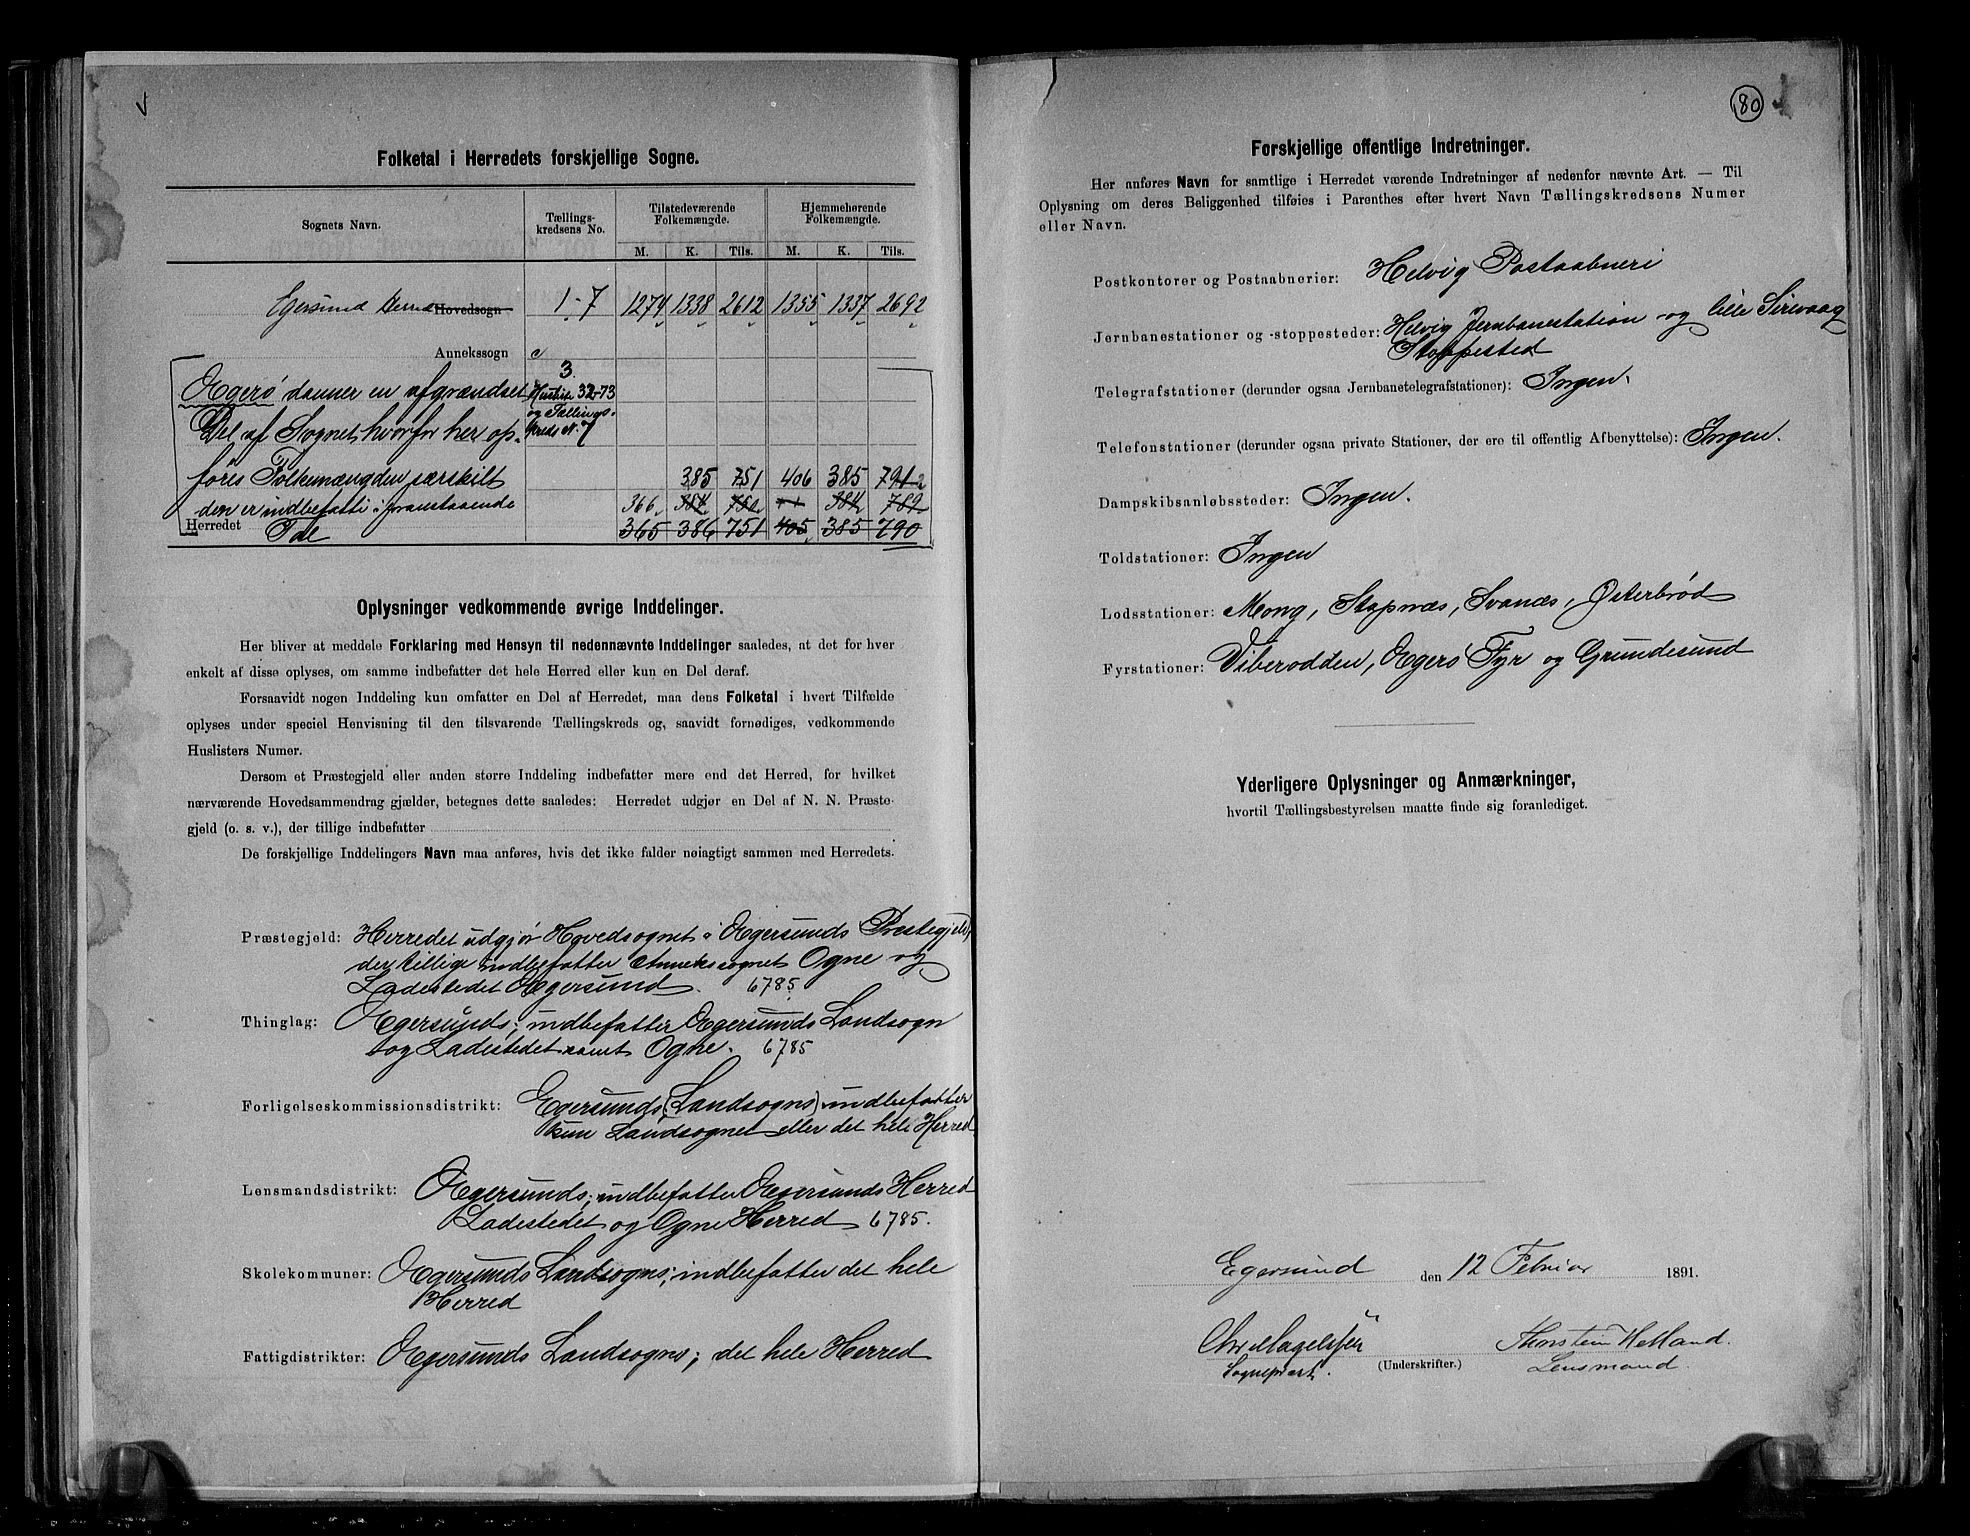 Folketal i Herredets forskjellige Sogne.
Sognets Navn. Tællings-kredsens No. Tilstedeværende Folkemængde. Hjemmehørende Folkemængde.
M. K. Tils. M. K. Tils.
Egersund Herred Hovedsogn 1-7 1274 1338 2612 1355 1337 2692
Annekssogn
3.
Ægerø danner en afgrændset Huslister 32-73
og Tællings-
Del af Sognet hvorfor her op- kreds N. 7
føres Folkemængden særskilt 385 751 406 385 791
den er indbefattet i foranstaaende 366 384 750 384 789
Herredet Tale 365 386 751 405 385 790
Oplysninger vedkommende øvrige Inddelinger.
Her bliver at meddele Forklaring med Hensyn til nedennævnte Inddelinger saaledes, at det for hver
enkelt af disse oplyses, om samme indbefatter det hele Herred eller kun en Del deraf.
Forsaavidt nogen Inddeling kun omfatter en Del af Herredet, maa dens Folketal i hvert Tilfælde
oplyses under speciel Henvisning til den tilsvarende Tællingskreds og, saavidt fornødiges, vedkommende
Huslisters Numer.
Dersom et Præstegjeld eller anden større Inddeling indbefatter mere end det Herred, for hvilket
nærværende Hovedsammendrag gjælder, betegnes dette saaledes: Herredet udgjør en Del af N. N. Præste-
gjeld (o. s. v.), der tillige indbefatter
De forskjellige Inddelingers Navn maa anføres, hvis det ikke falder nøiagtigt sammen med Herredets.
Præstegjeld: Herredet udgjør Hovedsognet i Ægersunds Prestegjeld,
der tillige indbefatter Annekssognet Ogne og
Ladestedet Ægersund. 6785
Thinglag: Ægersunds; indbefatter Ægersunds Landsogn
og Ladestedet samt Ogne. 6785
Forligelseskommissionsdistrikt: Egersunds (Landsogns) indbefatter
kun Landsognet eller det hele Herred
Lensmandsdistrikt: Ægersunds; indbefatter Ægersunds Herred
Ladestedet og Ogne Herred 6785.
Skolekommuner: Ægersunds Landsogns; indbefatter det hele
Herred
Fattigdistrikter: Ægersunds Landsogns; det hele Herred
80
Forskjellige offentlige Indretninger.
Her anføres Navn for samtlige i Herredet værende Indretninger af nedenfor nævnte Art. — Til
Oplysning om deres Beliggenhed tilføies i Parenthes efter hvert Navn Tællingskredsens Numer
eller Navn.
Postkontorer og Postaabnerier: Helvig Postaabneri
Jernbanestationer og -stoppesteder: Helvig Jernbanestation og lille Sirevaag
Stoppested
Telegrafstationer (derunder ogsaa Jernbanetelegrafstationer): Ingen.
Telefonstationer (derunder ogsaa private Stationer, der ere til offentlig Afbenyttelse): Ingen.
Dampskibsanløbssteder: Ingen.
Toldstationer: Ingen
Lodsstationer: Mong, Stapnæs, Svanæs, Østerbrød
Fyrstationer: Viberodden, Ægerø Fyr og Grundesund
Yderligere Oplysninger og Anmærkninger,
hvortil Tællingsbestyrelsen maatte finde sig foranlediget.
Egersund den 12 Februar 1891.
Chr. Magelssen Thorstein Helland.
Sogneprest. (Underskrifter.) Lensmand.